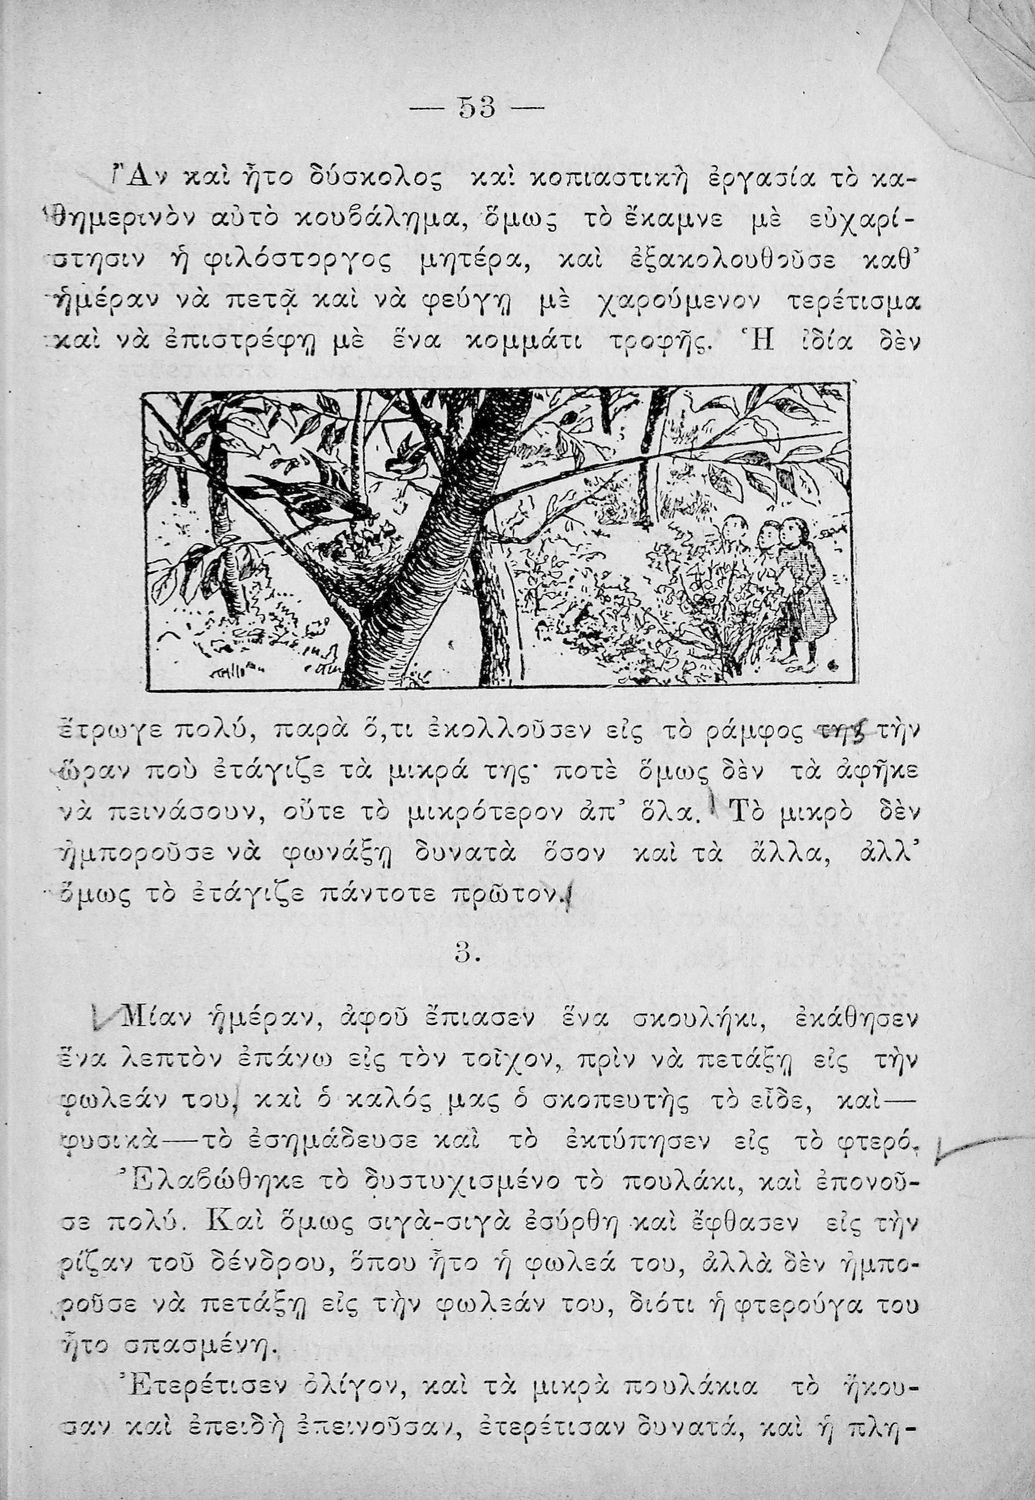 — 53 —
Ἂν καὶ ἦτο δύσκολος καὶ κοπιαστικὴ ἐργασία τὸ κα-
θημερινὸν αὐτὸ κουβάλημα, ὅμως τὸ ἔκαμνε μὲ εὐχαρί-
στησιν ἡ φιλόστοργος μητέρα, καὶ ἐξακολουθοῦσε καθ’
ἡμέραν νὰ πετᾷ καὶ νὰ φεύγῃ μὲ χαρούμενον τερέτισμα
καὶ νὰ ἐπιστρέφῃ μὲ ἕνα κομμάτι τροφῆς. Ἡ ἰδία δὲν
ἔτρωγε πολύ, παρὰ ὅ,τι ἐκολλοῦσεν εἰς τὸ ράμφος της τὴν
ὥραν ποὺ ἐτάγιζε τὰ μικρά της· ποτὲ ὅμως δὲν τὰ ἀφῆκε
νὰ πεινάσουν, οὔτε τὸ μικρότερον ἀπ’ ὅλα. Τὸ μικρὸ δὲν
ἠμποροῦσε νὰ φωνάξῃ δυνατὰ ὅσον καὶ τὰ ἄλλα, ἀλλ’
ὅμως τὸ ἐτάγιζε πάντοτε πρῶτον.
3.
Μίαν ἡμέραν, ἀφοῦ ἔπιασεν ἕνα σκουλήκι, ἐκάθησεν
ἕνα λεπτὸν ἐπάνω εἰς τὸν τοῖχον, πρὶν νὰ πετάξῃ εἰς τὴν
φωλεάν του, καὶ ὁ καλός μας ὁ σκοπευτὴς τὸ εἶδε, καὶ—
φυσικὰ—τὸ ἐσημάδευσε καὶ τὸ ἐκτύπησεν εἰς τὸ φτερό.
Ἐλαβώθηκε τὸ δυστυχισμένο τὸ πουλάκι, καὶ ἐπονοῦ-
σε πολύ. Καὶ ὅμως σιγὰ-σιγὰ ἐσύρθη καὶ ἔφθασεν εἰς τὴν
ρίζαν τοῦ δένδρου, ὅπου ἦτο ἡ φωλεά του, ἀλλὰ δὲν ἠμπο-
ροῦσε νὰ πετάξῃ εἰς τὴν φωλεάν του, διότι ἡ φτερούγα του
ἦτο σπασμένη.
Ἐτερέτισεν ὀλίγον, καὶ τὰ μικρὰ πουλάκια τὸ ἤκου-
σαν καὶ ἐπειδὴ ἐπεινοῦσαν, ἐτερέτισαν δυνατά, καὶ ἡ πλη-